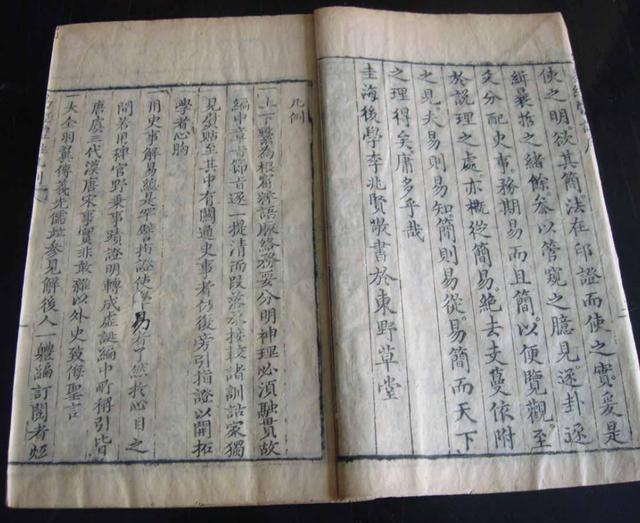 使之明欲其簡法在印證而使之實爰是
緝㬥括之緒餘參以管窺之臆見逐卦逐
爻分配史事務期易而且簡以便覽觀至
於說理之處亦概從簡易絕去支蔓依附
之見夫易則易知簡則易從易簡而天下
之理得矣庸多乎哉
圭海後學李兆賢敬書於東野草堂
凡例
一上下繫為根窟辭語脈絡務要分明神理必須融貫故
編中章旨節旨逐一提清而段落承接較諸訓詁家獨
見剴貼至其中有關通史事者仍復旁引指證以開拓
學者心胸
一用史事解易總是罕譬指證使易有了然於心目之
間若用稗官野乘事蹟證明轉成虛誕編中所稱引皆
唐虞三代漢唐宋事實非敢雜以外史致侮聖言
一大全羽翼傳義先儒
參見解後人一
編訂閱者